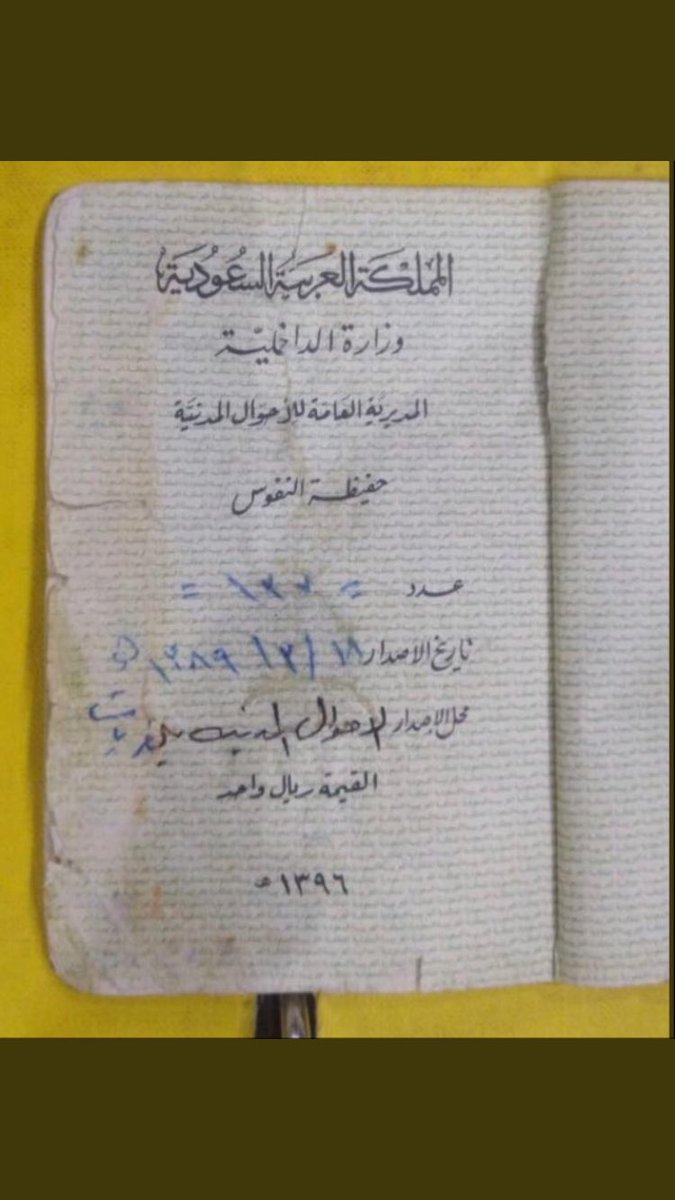 المملكة العربية السعودية
وزارة الداخلية
المديرية العامة للأحوال المدنية
حفيظة النفوس
عدد =
تاريخ الاصدار ١٨ / ٣ / ١٣٨٩ هـ
محل الإصدار الاحوال المدنيه
القيمة ريال واحد
١٣٩٦ هـ